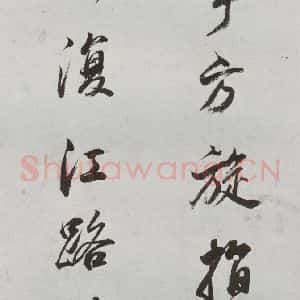 方旋指
復江路
Shufawang.CN